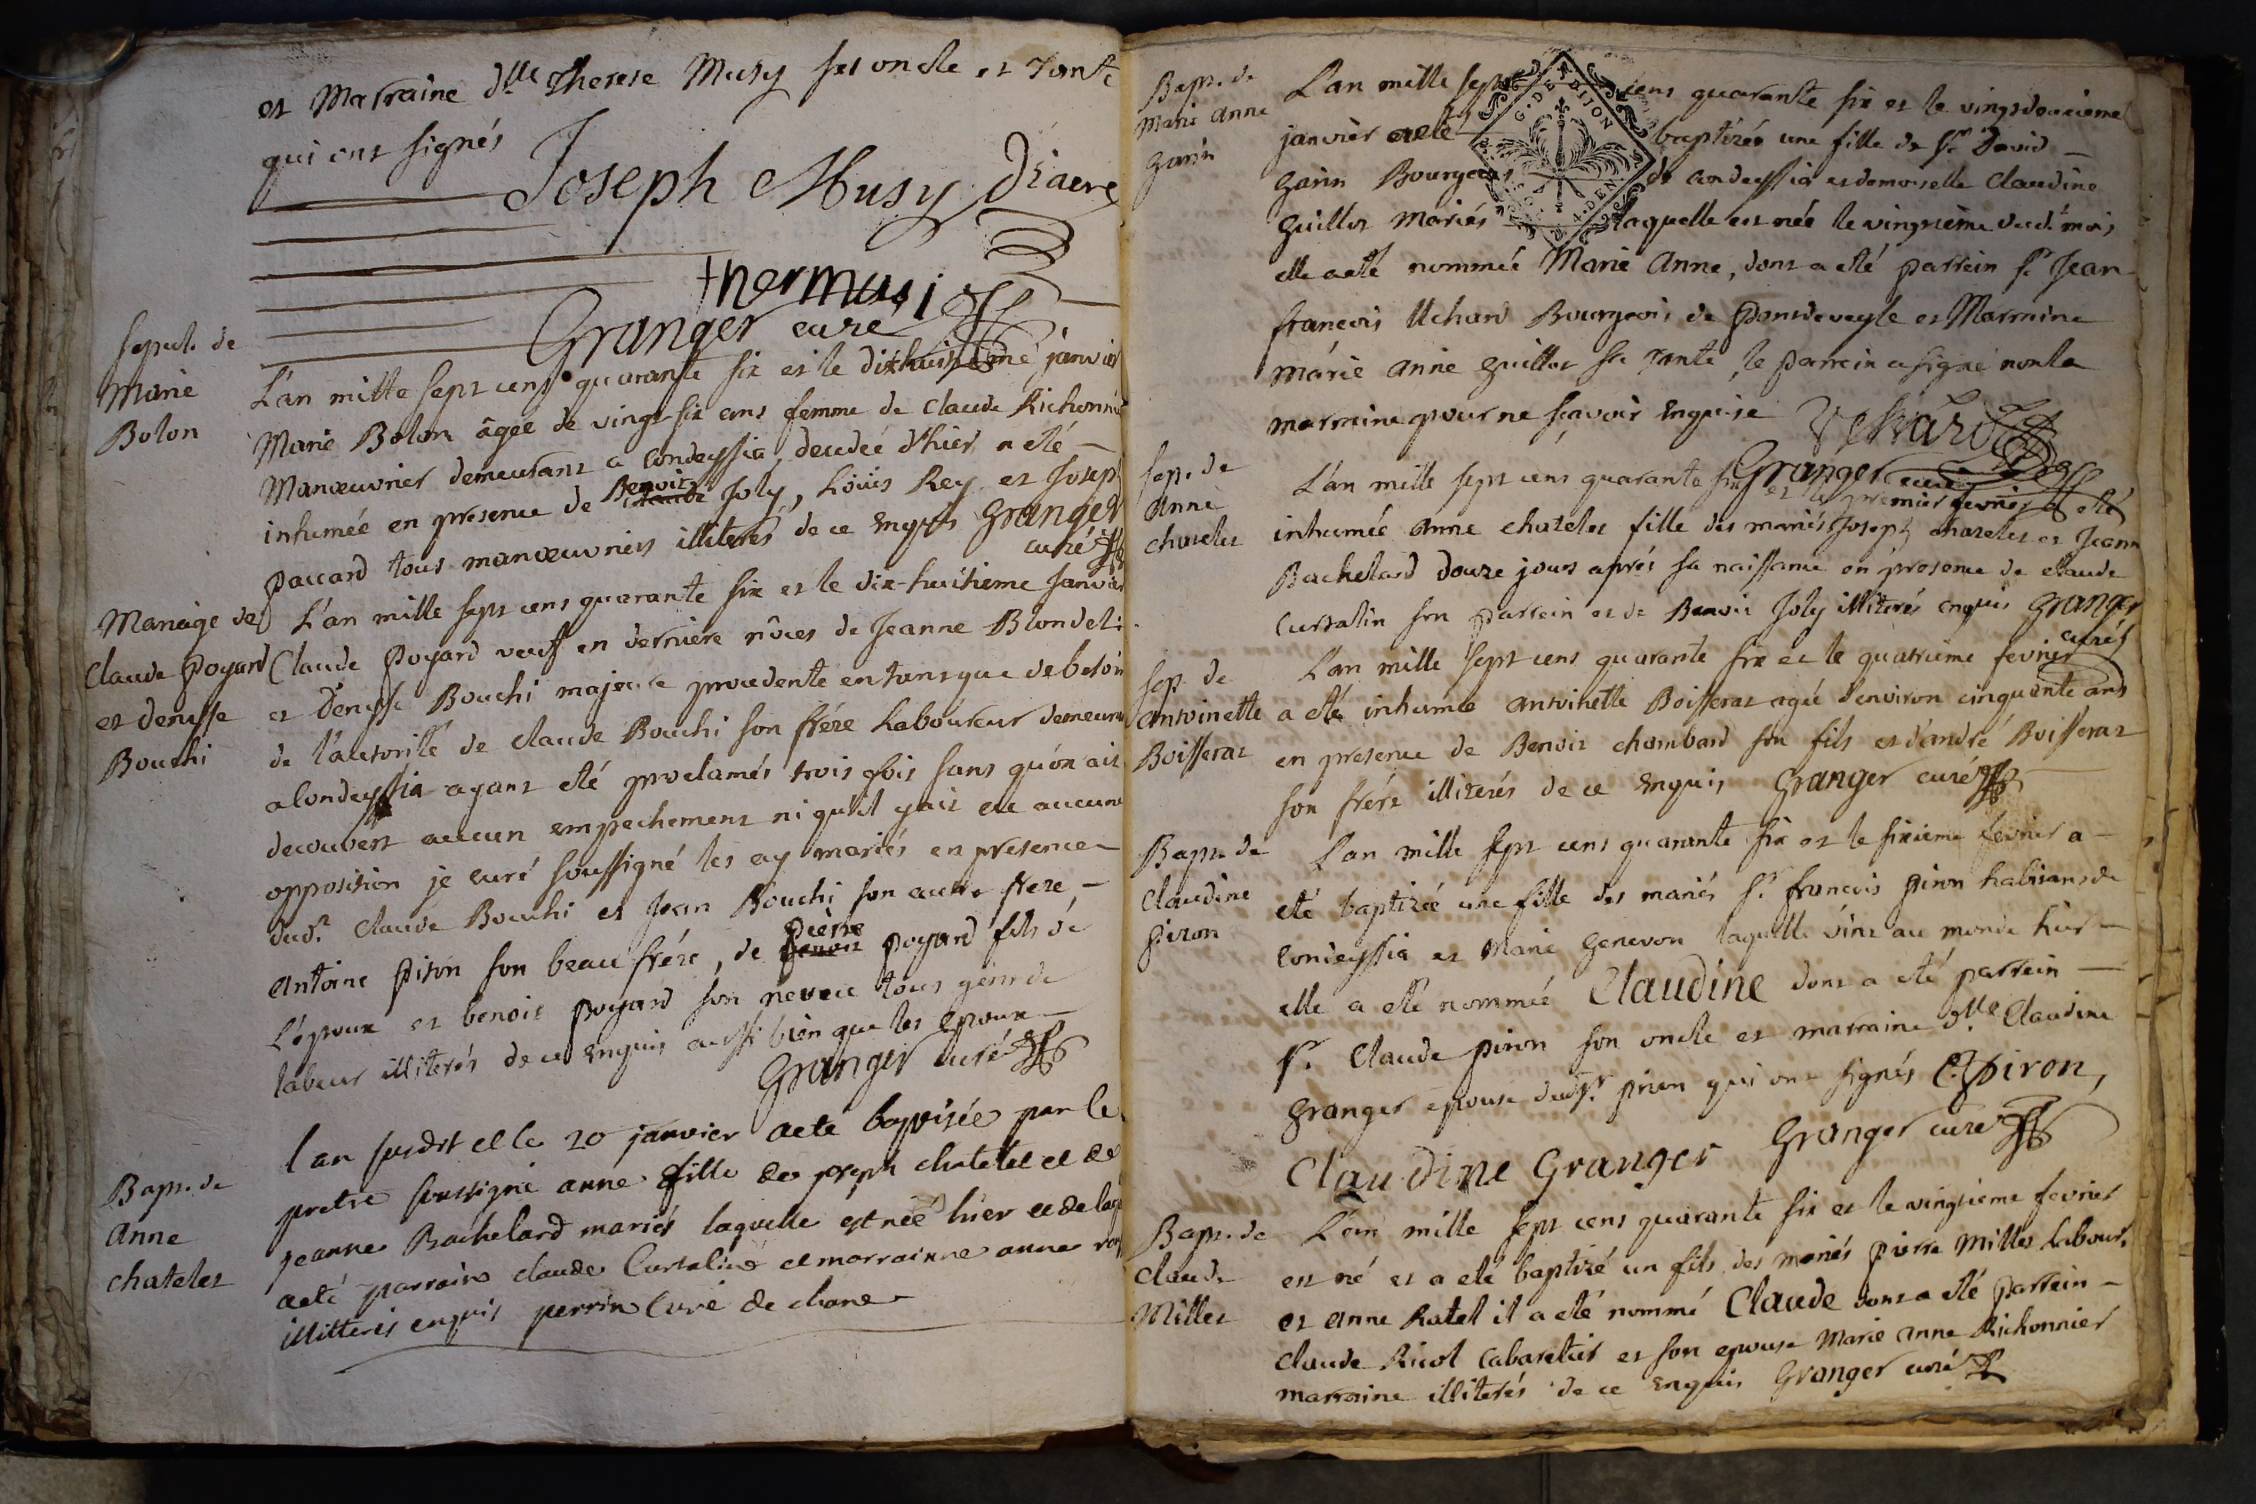 et Marraine dlle Therese Musy ses oncle et Tante
qui ont signés
Joseph Musy Diacre
thermusi
Granger curé
sepul. de
Marie
Bolon
L'an mille sept cens quarante six et le dixhuitieme janvier
Marie Bolon âgée de vingt six ans femme de Claude Richonnier
Manœuvrier demeurant a Condeyssia, decedée d'hier a eté
inhumée en presence de Benoit Joly, Louis Rey et Joseph
paccard tous manœuvriers illiterés de ce enquis Granger
curé
Mariage de
Claude Poyard
et denysse
Bouchi
L'an mille sept cens quarante six et le dix-huitieme Janvier
Claude Poyard veuf en derniere nôces de Jeanne Blondel
et Denysse Bouchi majeure procedente en tans que de besoin
de l'autorité de Claude Bouchi son frére Laboureur demeurant
a Condeyssia ayant eté proclamés trois fois sans qu'on ait
decouvert aucun empechement ni qu'il y ait eu aucune
opposition je curé soussigné les ay mariés en presence
dudt. Claude Bouchi et Jean Bouchi son autre frere,
Antoine Piron son beau frére, de pierre poyard fils de
L'époux et benoit poyard son neveu tous gens de
labeur illiterés de ce enquis aussi bien que les Epoux
Granger curé
Bapt. de
Anne
chatelet
lan susdit et le 20 janvier a eté baptisée par le
pretre soussigné anne fille de joseph chatelet et de
jeanne Bachelard mariés laquelle est née hier et de la
a eté parrain claude Curtalin et marrainne anne
illitteris enquis perrin Curé de chane
Bapt. de
Marie Anne
Garin
L'an mille sept cens quarante six et le vingt deuxieme
janvier a eté baptizée une fille de Sr. David
Garin Bourgeois de Condeyssia et demoiselle Claudine
Guillot mariés laquelle est née le vingtième dudt. mois
elle a eté nommée Marie Anne, dont a eté parrein Sr. Jean
françois Uchard Bourgeois de Pontdeveyle et Marraine
Marie Anne Guillot sa Tante, le parrein a signé non la
marraine pour ne sçavoir Enquise Uchard
G. DE DIJON
Granger curé
sep. de
Anne
chatelet
L'an mille sept cens quarante six et le premier fevrier a eté
inhumée Anne chatelet fille des mariés Joseph chatelet et Jeanne
Bachelard douze jours aprés sa naissance en presence de claude
Curtalin son parrein et de Benoit Joly illiterés enquis Granger
curé
sep. de
antoinette
Boisserat
L'an mille sept cens quarante six et le quatrieme fevrier
a eté inhumée antoinette Boisserat agée d'environ cinquante ans
en presence de Benoit chambard son fils et d'andré Boisserat
son frére illiterés de ce Enquis Granger curé
Bapt. de
Claudine
piron
L'an mille sept cens quarante six et le sixieme fevrier a
eté baptizée une fille des mariés Sr. françois Piron habitans de
Condeyssia et Marie Genevon laquelle vint au monde hier
elle a eté nommée Claudine dont a eté parrein
Sr. Claude piron son oncle et marraine dlle Claudine
Granger epouse dudt Sr. piron qui ont signés C. Piron,
Claudine Granger Granger curé
Bapt. de
Claude
Millet
L'an mille sept cens quarante six et le vingtieme fevrier
est né et a eté baptizé un fils des mariés Pierre Millet Labour.
et Anne Ratel il a eté nommé Claude dont a eté parrein
Claude Ricol Cabaretier et son epouse Marie Anne Richonnier
marraine illiterés de ce Enquis Granger curé